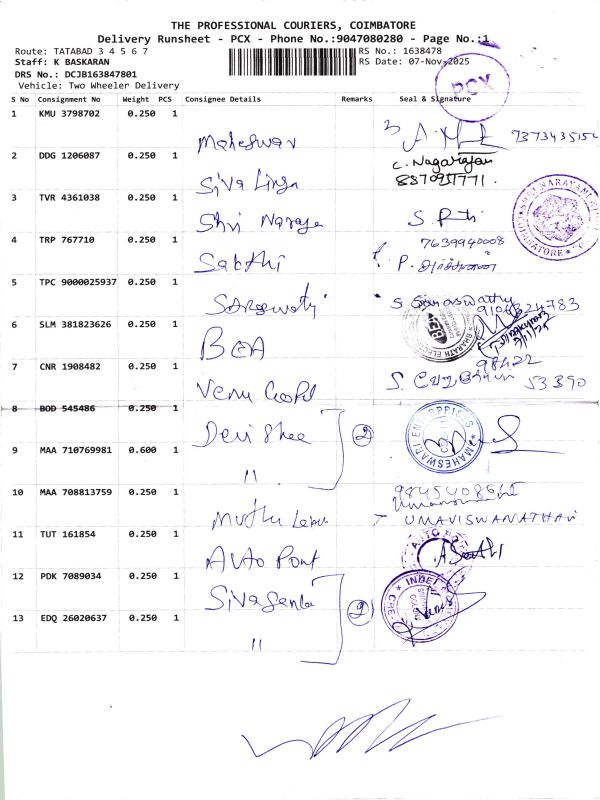 THE PROFESSIONAL COURIERS, COIMBATORE
Delivery Runsheet - PCX - Phone No.:9047080280 - Page No.:1
Route: TATABAD 3 4 5 6 7
RS No.: 1638478
Staff: K BASKARAN
RS Date: 07-Nov-2025
DRS No.: DCJB163847801
Vehicle: Two Wheeler Delivery
PCX
S No Consignment No Weight PCS Consignee Details Remarks Seal & Signature
1 KMU 3798702 0.250 1
Maheswar
2 DDG 1206087 0.250 1
C. Nagarajan
8870951771.
Siva Linga
3 TVR 4361038 0.250 1
Shri Naraya
4 TRP 767710 0.250 1
7639940008
Sakthi
5 TPC 9000025937 0.250 1
S Saraswathy
6 SLM 381823626 0.250 1
7 CNR 1908482 0.250 1
98422
53390
Venu Gopal
8 BOD 545486 0.250 1
Devi Shee
2
MAHESWARI ENTERPRISES
9 MAA 710769981 0.600 1
"
10 MAA 708813759 0.250 1
UMAVISWANATHAN
11 TUT 161854 0.250 1
Auto Point
12 PDK 7089034 0.250 1
2
13 EDQ 26020637 0.250 1
"